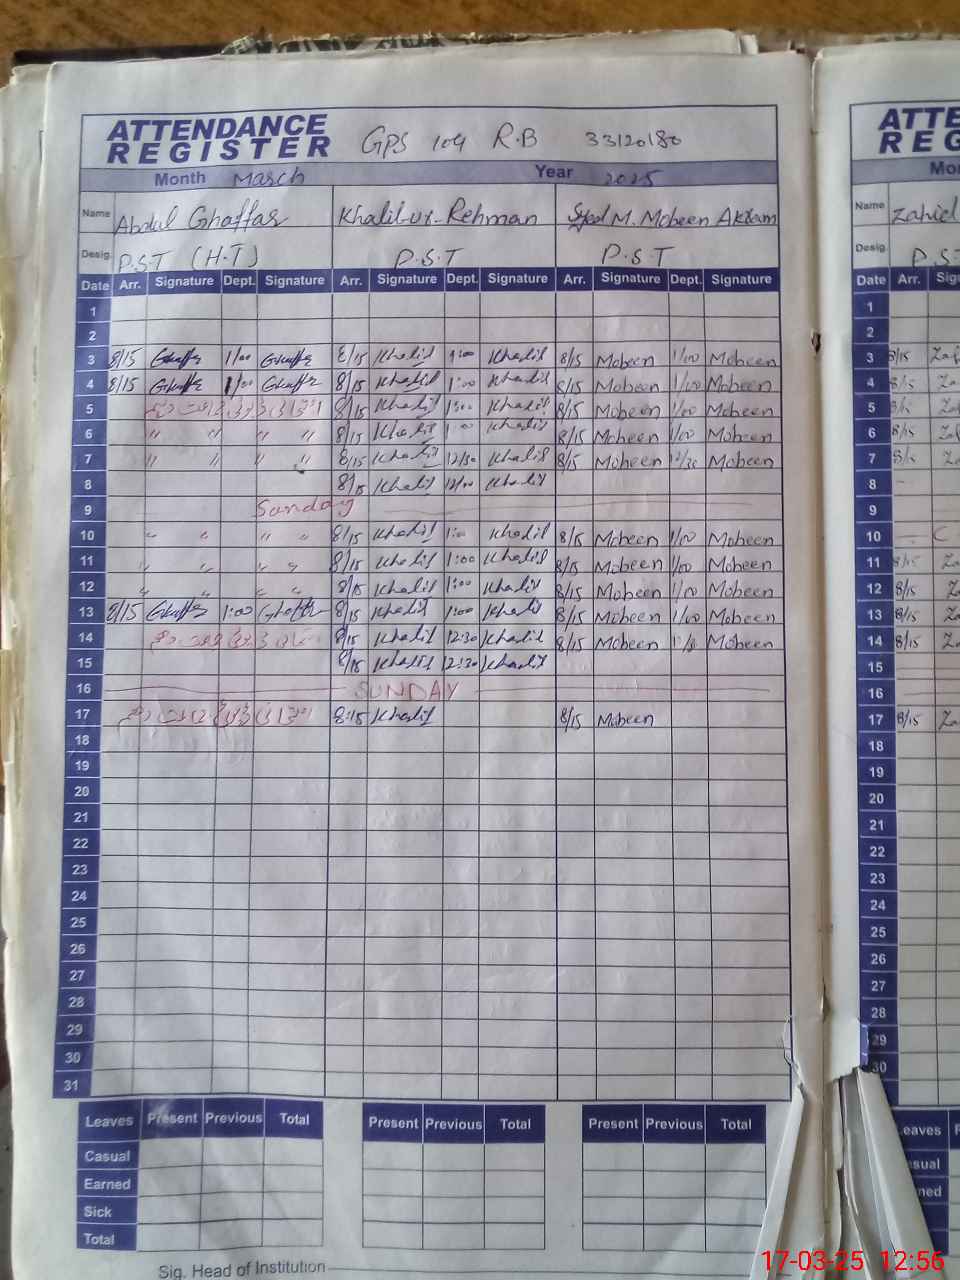 ATTENDANCE REGISTER GPS 109 R.B 33120180
Month March Year 2025
Name Abdul Ghaffar Khalil-ur-Rehman Syed M. Mobeen Akram
Desig. P.S.T (H.T) P.S.T P.S.T
Date Arr. Signature Dept. Signature Arr. Signature Dept. Signature Arr. Signature Dept. Signature
1
2
3 8/15 Ghaffar 1/00 Ghaffar 8/15 Khalil 1:00 Khalil 8/15 Mobeen 1/00 Mobeen
4 8/15 Ghaffar 1/00 Ghaffar 8/15 Khalil 1:00 Khalil 8/15 Mobeen 1/00 Mobeen
5 8/15 Khalil 1:00 Khalil 8/15 Mobeen 1/00 Mobeen
6 " " " " 8/15 Khalil 1:00 Khalil 8/15 Mobeen 1/00 Mobeen
7 " " " " 8/15 Khalil 12/30 Khalil 8/15 Mobeen 12/30 Mobeen
8 8/15 Khalil 12/00 Khalil
9 Sunday
10 " " " " 8/15 Khalil 1:00 Khalil 8/15 Mobeen 1/00 Mobeen
11 " " " " 8/15 Khalil 1:00 Khalil 8/15 Mobeen 1/00 Mobeen
12 " " " " 8/15 Khalil 1:00 Khalil 8/15 Mobeen 1/00 Mobeen
13 8/15 Ghaffar 1:00 Ghaffar 8/15 Khalil 1:00 Khalil 8/15 Mobeen 1/00 Mobeen
14 8/15 Khalil 12:30 Khalil 8/15 Mobeen Mobeen
15 8/15 Khalil 12:30 Khalil
16 SUNDAY
17 8:15 Khalil 8/15 Mobeen
18
19
20
21
22
23
24
25
26
27
28
29
30
31
Leaves Present Previous Total Present Previous Total Present Previous Total
Casual
Earned
Sick
Total
Sig. Head of Institution
Name Zahid
Desig. P.S.
Date Arr.
1
2
3 8/15
4 8/15
5
6 8/15
7 8/15
8
9
10
11 8/15
12 8/15
13 8/15
14 8/15
15
16
17 8/15
18
19
20
21
22
23
24
25
26
27
28
29
30
17-03-25 12:56